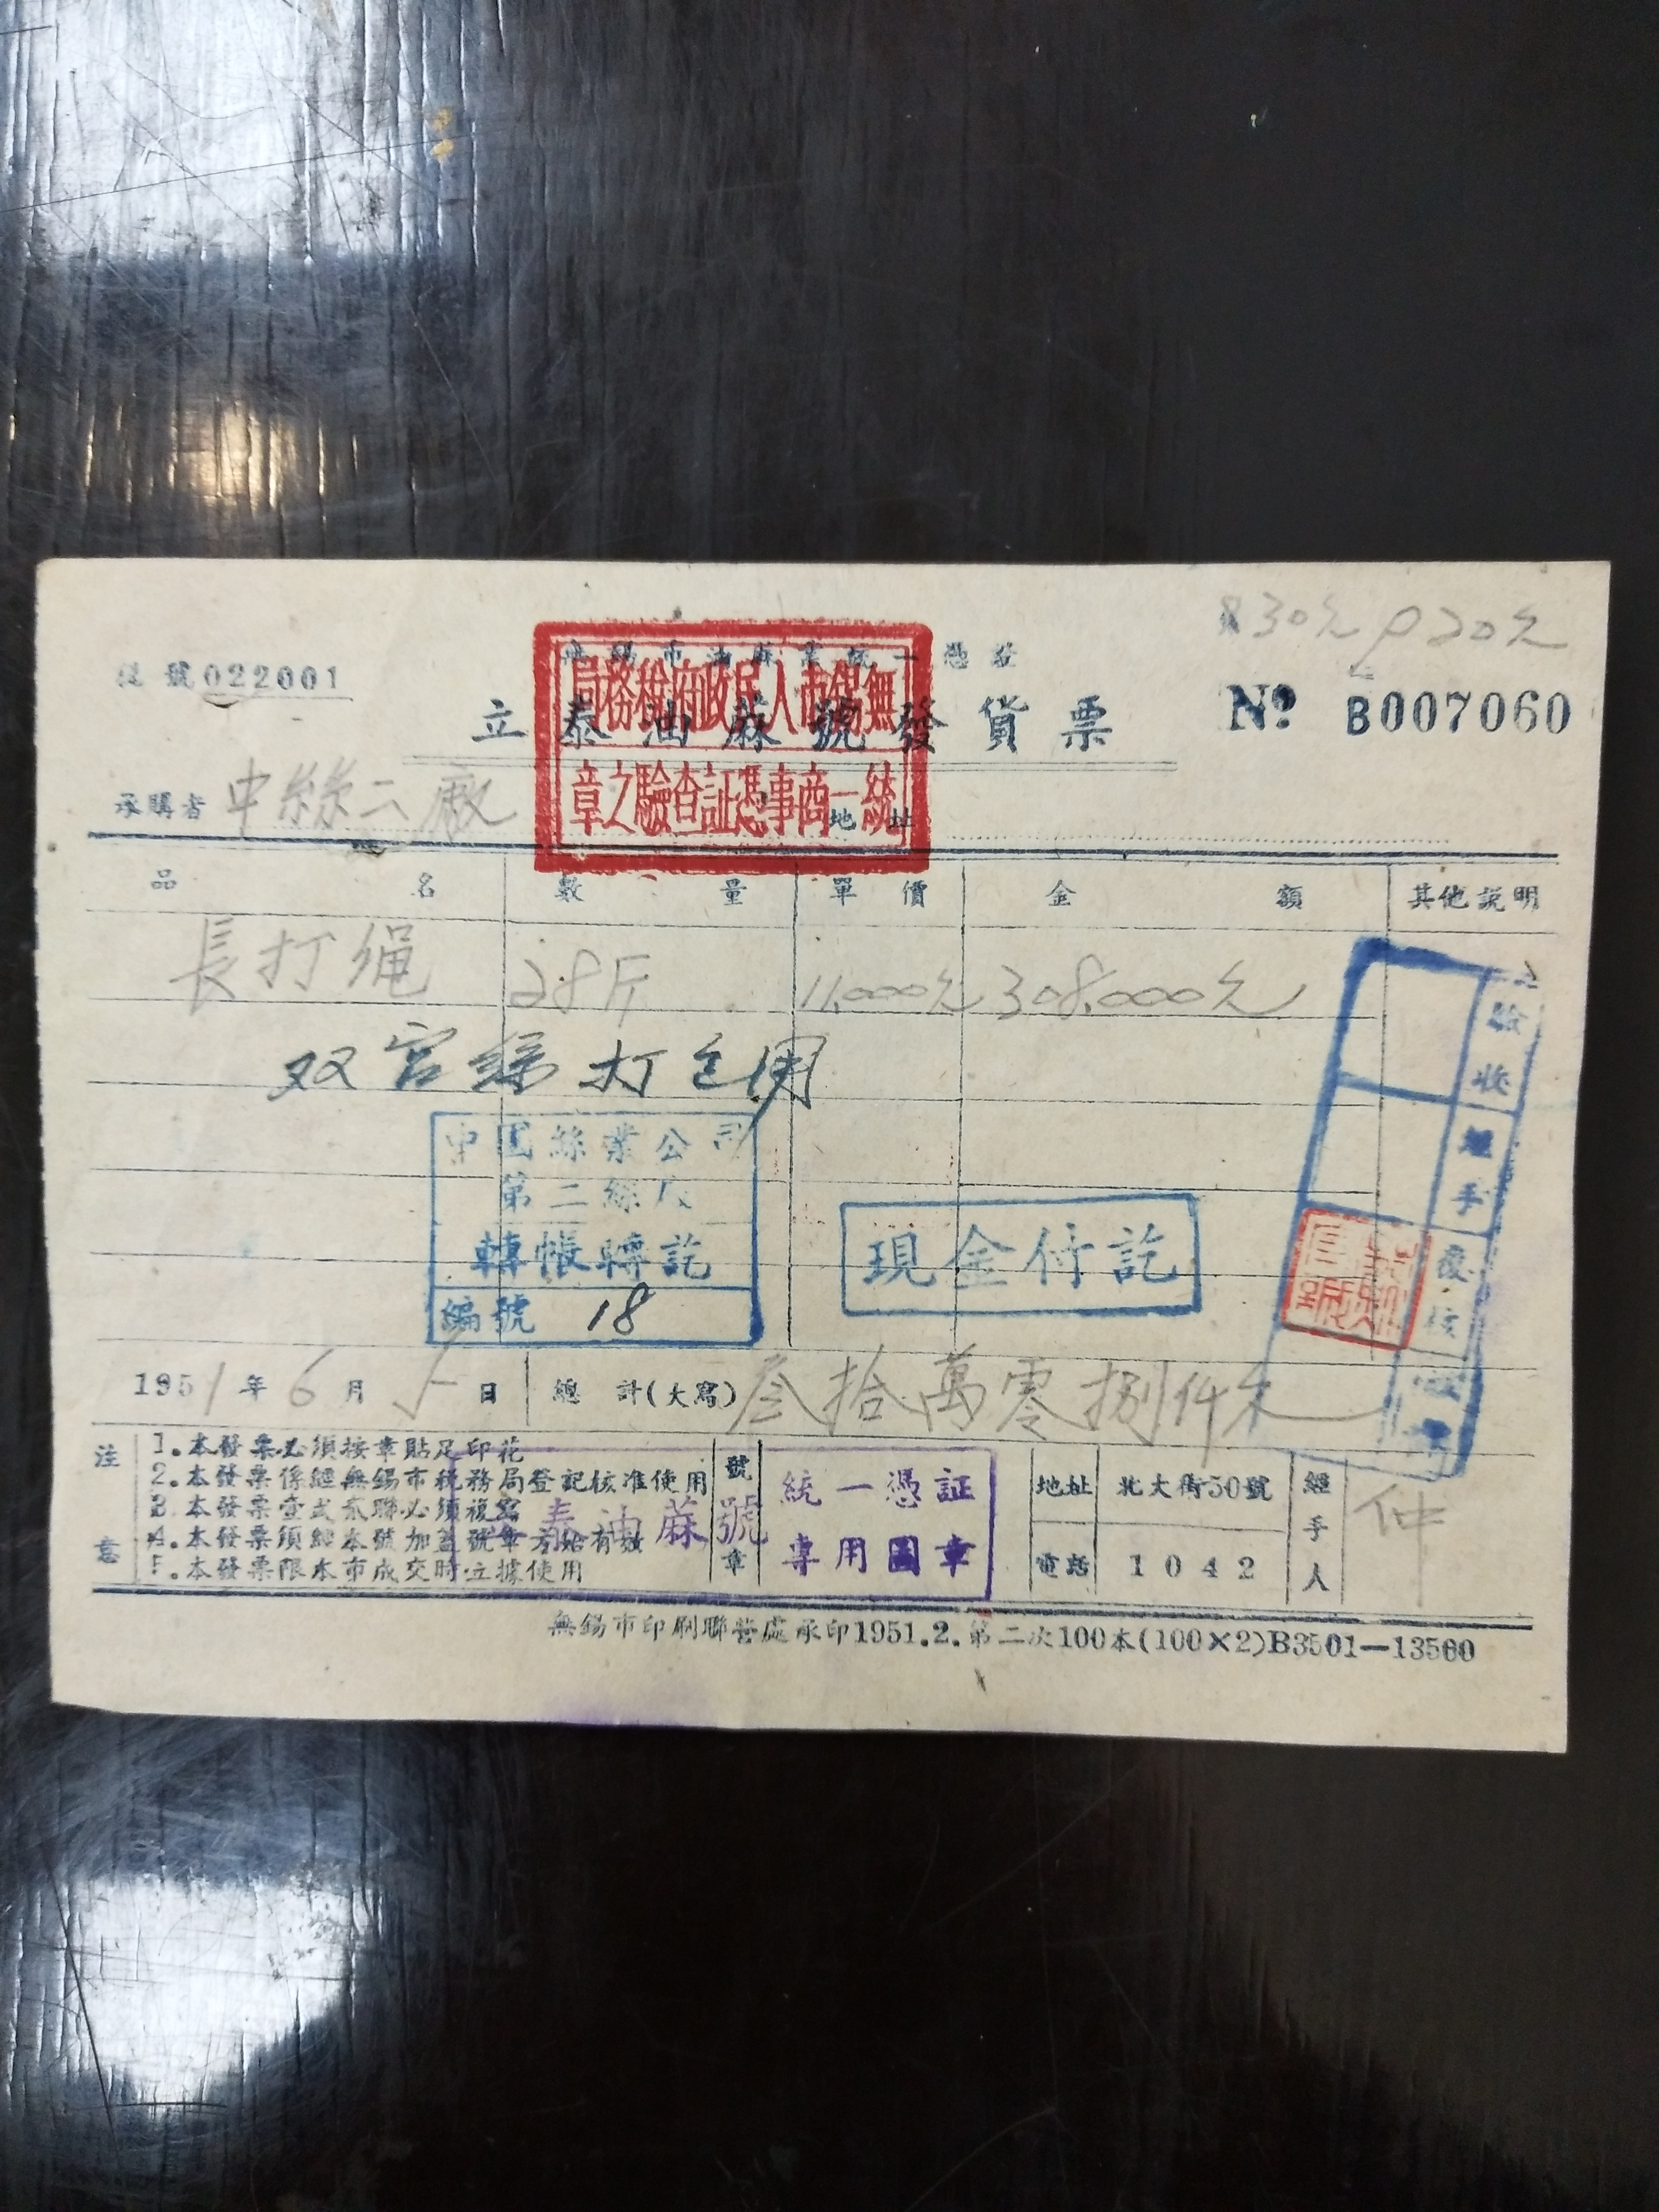 號022001
無錫市油麻業統一憑證
立泰油蔴號發貨票
30元 20元
No. B007060
無錫市人民政府稅務局
統一商事憑証查驗之章
承購者 中絲二廠 地址
品名 數量 單價 金額 其他説明
長打绳 28斤 11,000元 308,000元
双宮絲打包用
中國絲業公司
第二絲厂
轉帳轉訖
編號 18
現金付訖
驗收
經手
覆核
1951年6月5日 總計(大寫) 叁拾萬零捌仟元
注意
1.本發票必須按章貼足印花
2.本發票係經無錫市稅務局登記核准使用
3.本發票壹式貳聯必須複寫
4.本發票須經本號加蓋號章方始有效
5.本發票限本市成交時立據使用
號章
泰油蔴號
統一憑証
專用圖章
地址 北大街50號
電話 1042
經手人 仲
無錫市印刷聯營處承印1951.2.第二次100本(100×2)B3501—13500